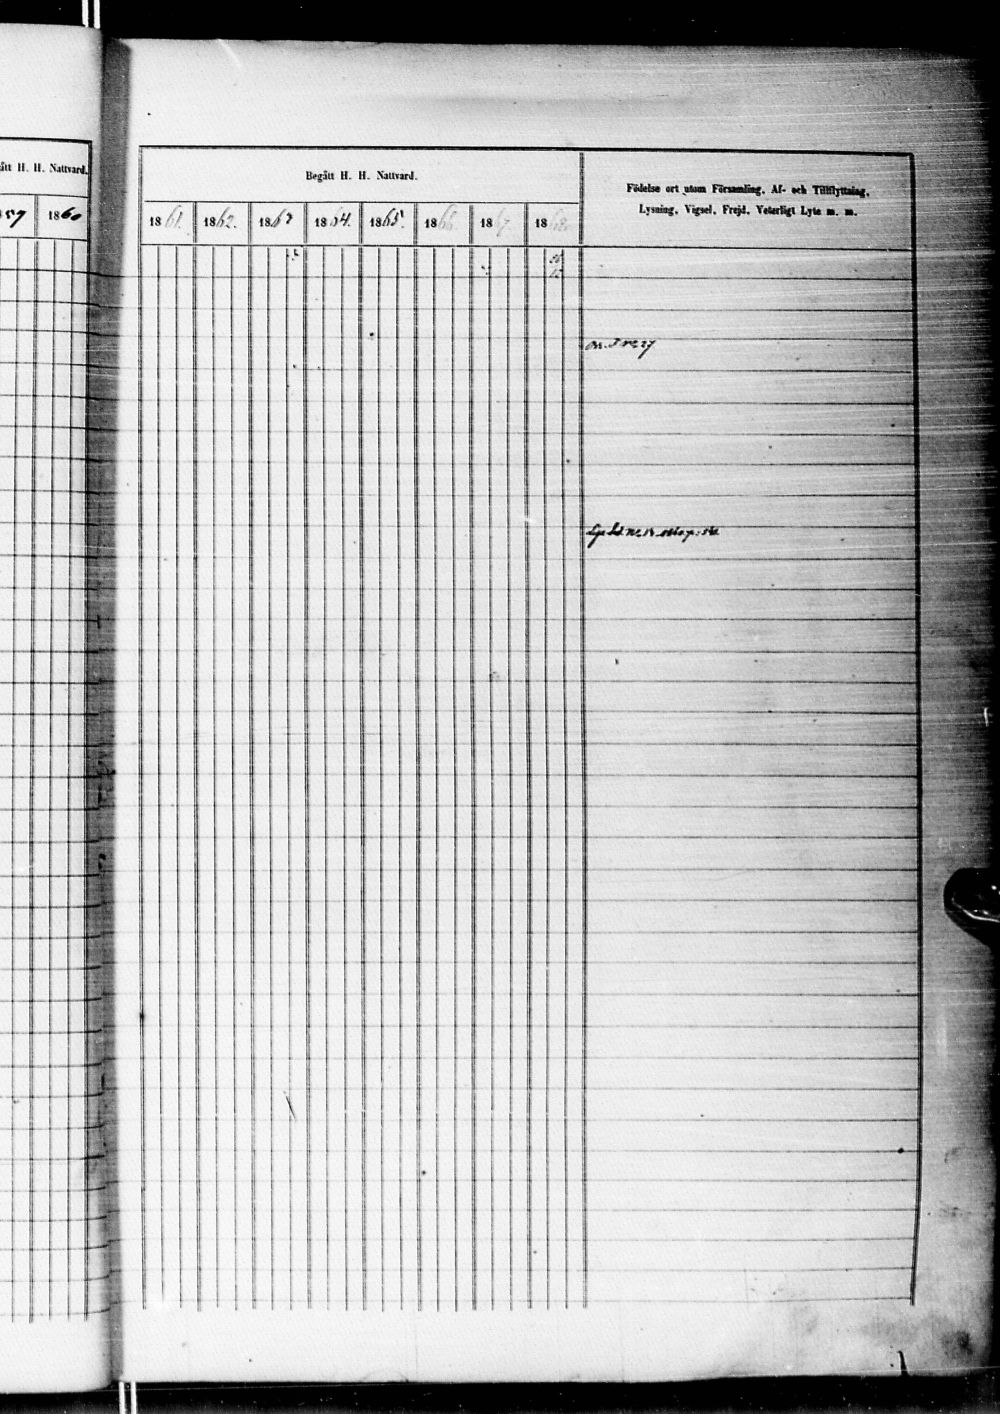 ått H. H. Nattvard.
57 1860
Begått H. H. Nattvard.
1861. 1862. 1863 1864. 1865. 1866. 1867. 1868.
Födelse ort utom Församling, Af- och Tillflyttning,
Lysning, Vigsel, Frejd, Veterligt Lyte m. m.